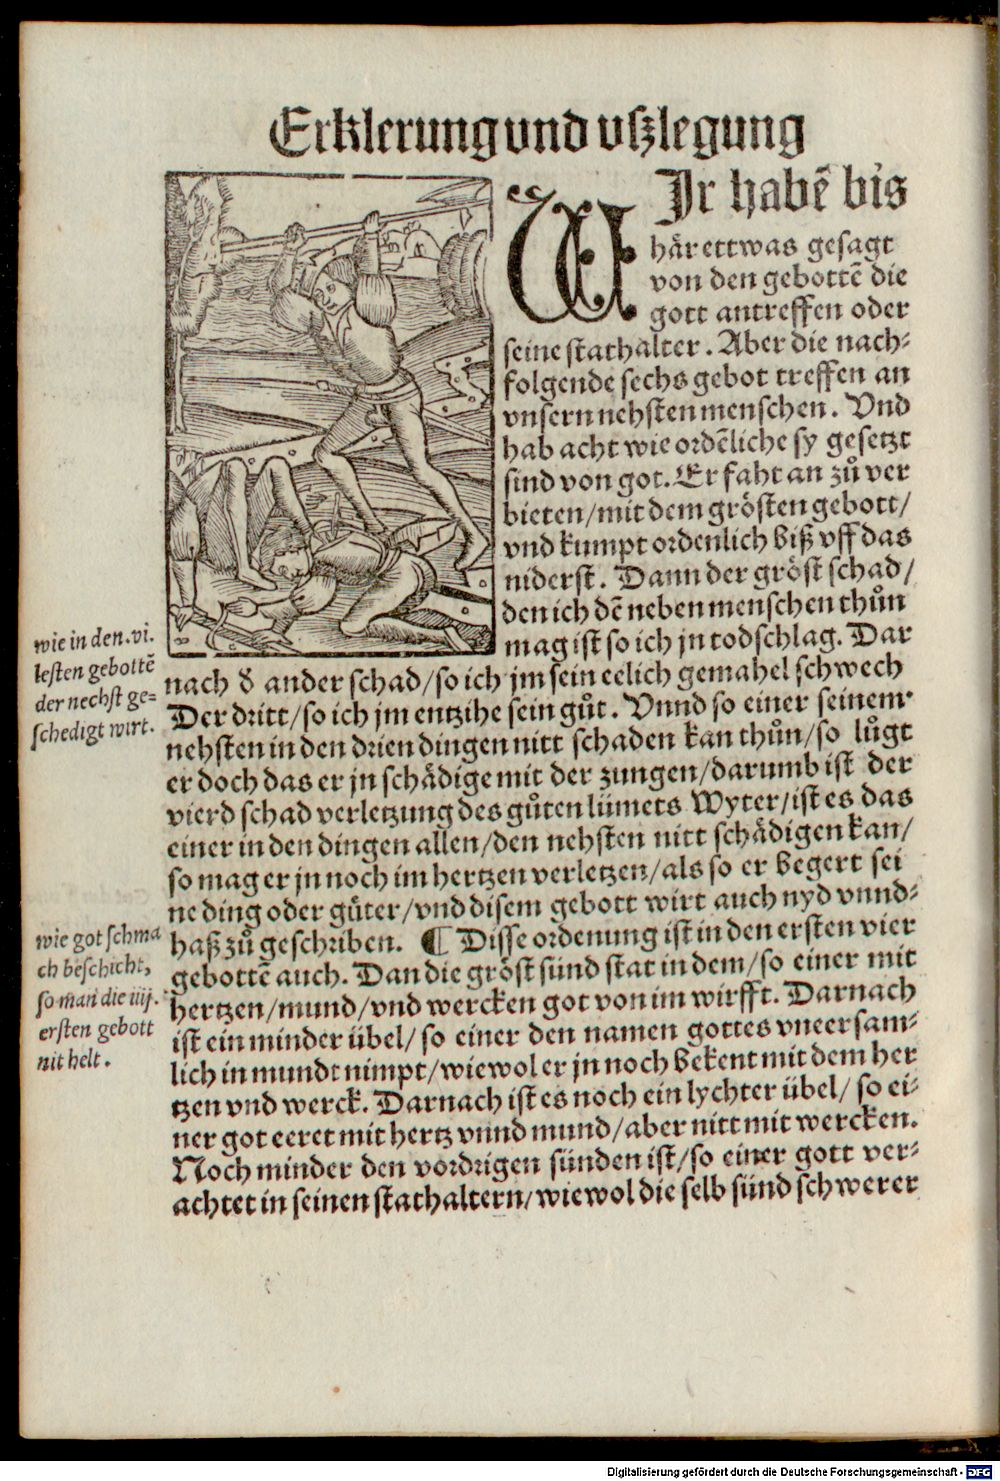 Erklerung vnd vſzlegung
WJr habē bis
här ettwas geſagt
von den gebottē die
gott antreffen oder
ſeine ſtathalter. Aber die nach⸗
folgende ſechs gebot treffen an
vnſern nehſten menſchen. Vnd
hab acht wie ordēliche ſy geſetzt
ſind von got. Er faht an zů ver
bieten/mit dem gröſten gebott/
vnd kumpt ordenlich biß vff das
niderſt. Dann der gröſt ſchad/
den ich dē neben menſchen thůn
mag iſt ſo ich jn todſchlag. Dar
nach ð ander ſchad/ſo ich jm ſein eelich gemahel ſchwech
Der dritt/ſo ich jm entzihe ſein gůt. Vnnd ſo einer ſeinem
nehſten in den drien dingen nitt ſchaden kan thůn/ſo lůgt
er doch das er jn ſchädige mit der zungen/darumb iſt der
vierd ſchad verletzung des gůten lümets Wyter/iſt es das
einer in den dingen allen/den nehſten nitt ſchädigen kan/
ſo mag er jn noch im hertzen verletzen/als ſo er begert ſei
ne ding oder güter/vnd diſem gebott wirt auch nyd vnnd⸗
haß zů geſchriben. ¶ Diſſe ordenung iſt in den erſten vier
gebottē auch. Dan die gröſt ſünd ſtat in dem/ſo einer mit
hertzen/mund/vnd wercken got von im wirfft. Darnach
iſt ein minder übel/ſo einer den namen gottes vneerſam⸗
lich in mundt nimpt/wiewol er jn noch bekent mit dem her
tzen vnd werck. Darnach iſt es noch ein lychter übel/ſo ei⸗
ner got eeret mit hertz vnnd mund/aber nitt mit wercken.
Noch minder den vordrigen ſünden iſt/ſo einer gott ver⸗
achtet in ſeinen ſtathaltern/wiewol die ſelb ſünd ſchwerer
wie in den .vi.
leſten gebottē
der nechſt ge⸗
ſchedigt wirt.
wie got ſchma
ch beſchicht,
ſo man die iiij.
erſten gebott
nit helt.
Digitalisierung gefördert durch die Deutsche Forschungsgemeinschaft - DFG